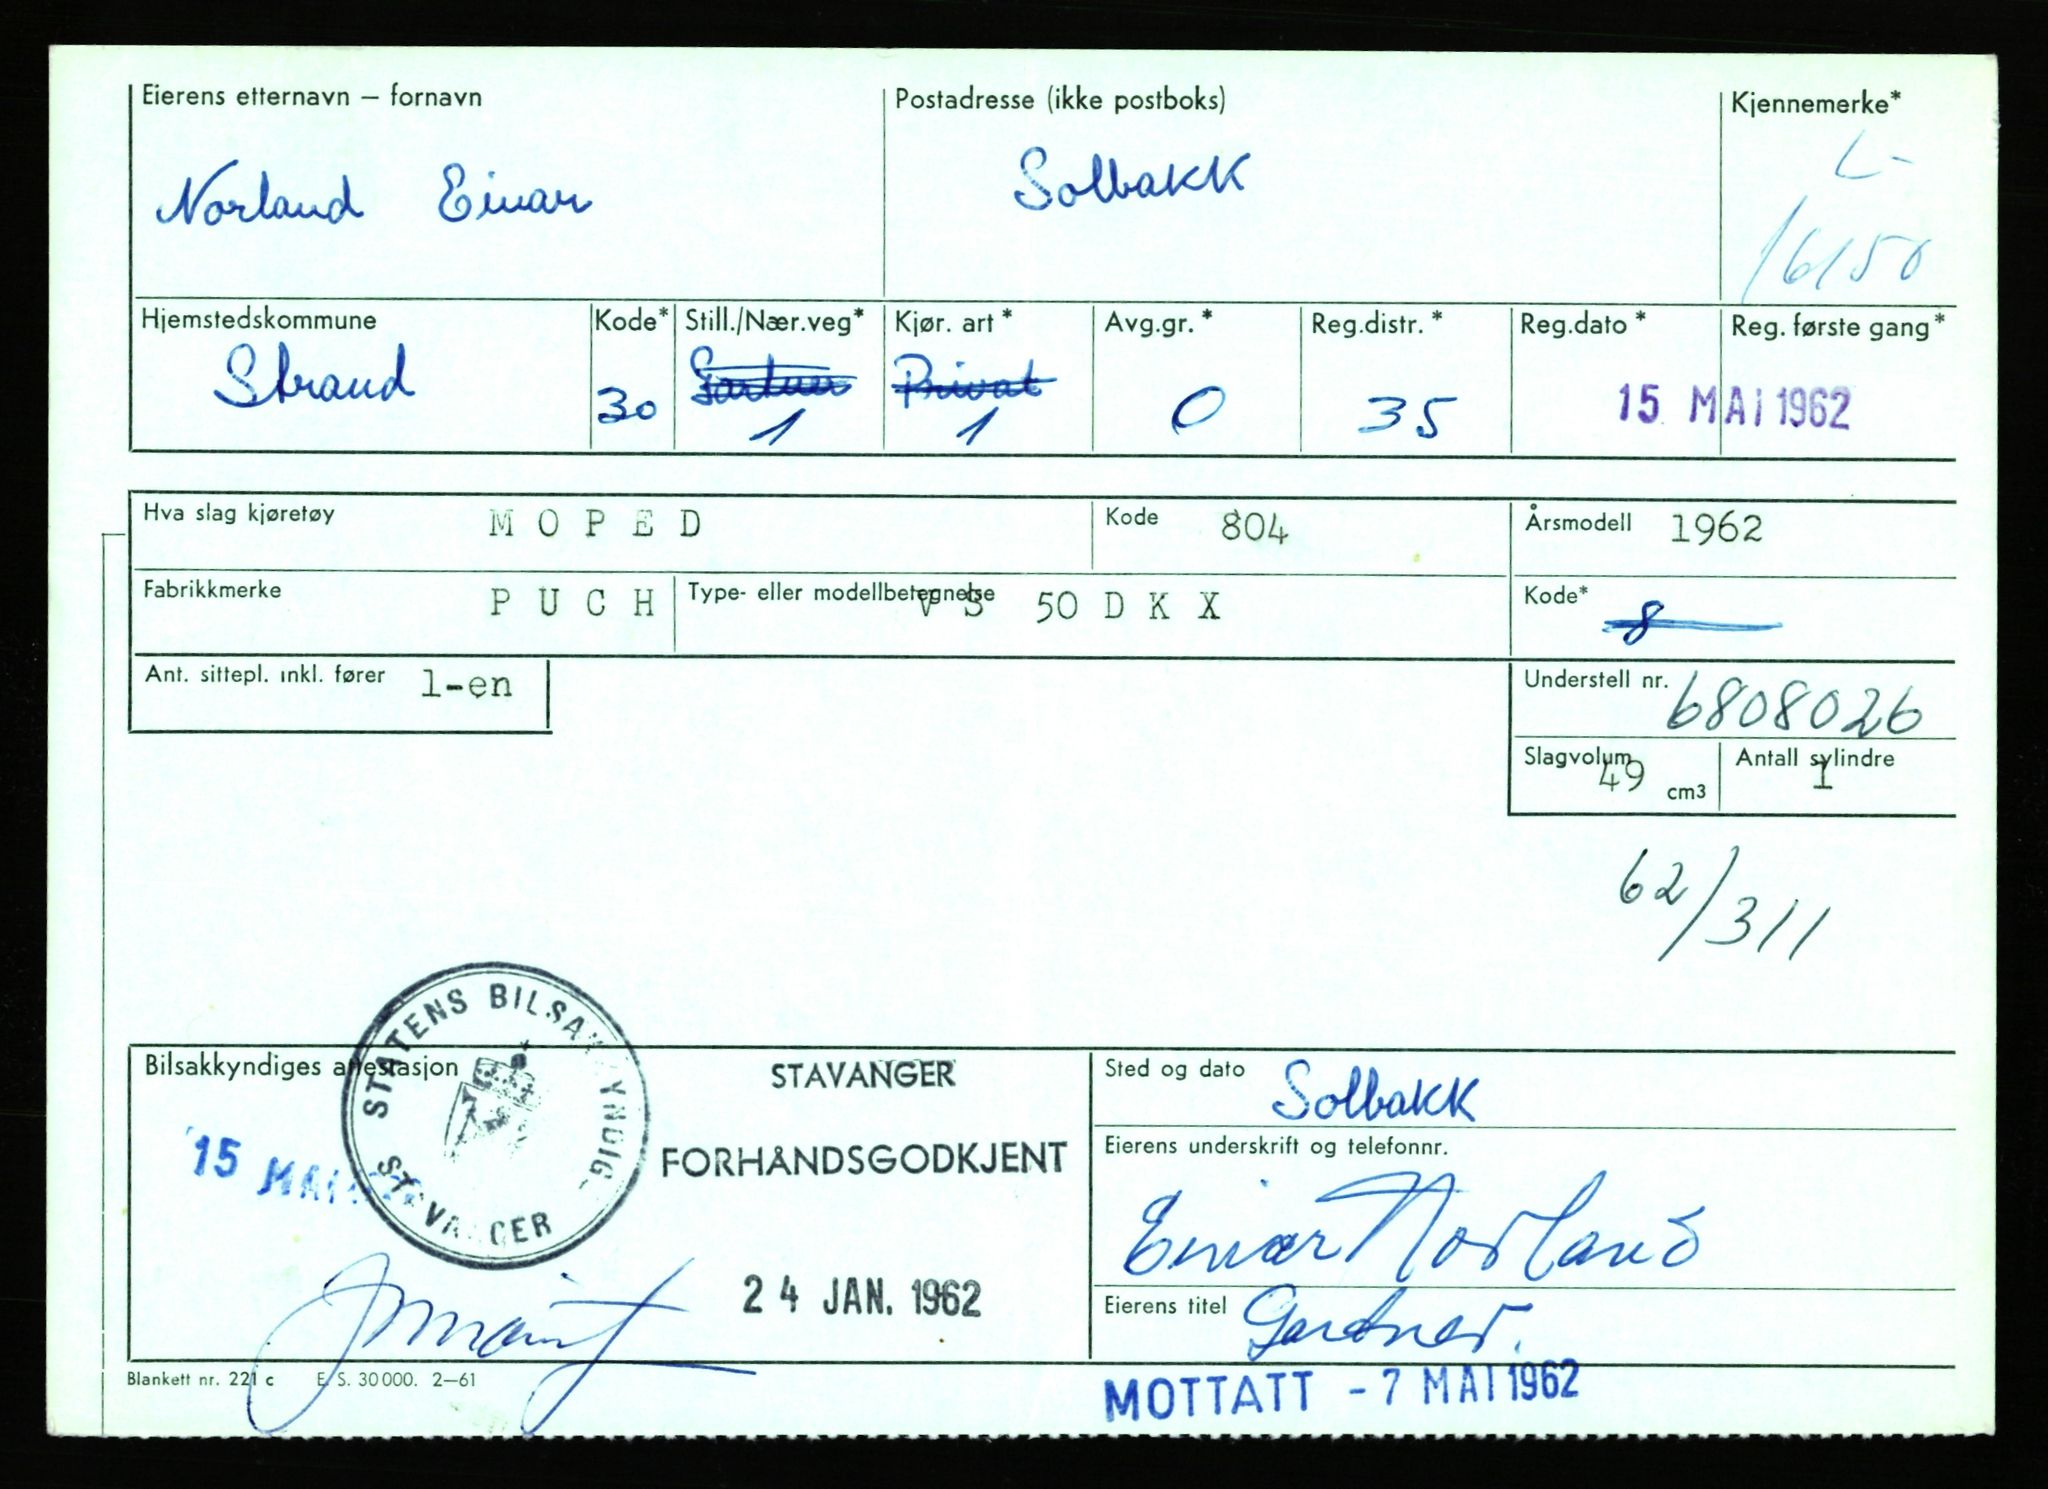 Eierens etternavn – fornavn
Norland Einar
Postadresse (ikke postboks)
Solbakk
Kjennemerke*
L-
16150
Hjemstedskommune
Strand
Kode*
30
Still./Nær.veg*
Gartner
1
Kjør. art *
Privat
1
Avg.gr. *
0
Reg.distr. *
35
Reg.dato *
Reg. første gang *
15. MAI 1962
Hva slag kjøretøy
MOPED
Kode
804
Årsmodell
1962
Fabrikkmerke
PUCH
Type- eller modellbetegnelse
VS 50 D K X
Kode*
8
Ant. sittepl. inkl. fører
1-en
Understell nr.
6808026
Slagvolum
49
cm3
Antall sylindre
1
62/311
Bilsakkyndiges attestasjon
STATENS BILSAKKYNDIG.
STAVANGER
15 MAI
STAVANGER
FORHÅNDSGODKJENT
24 JAN. 1962
Sted og dato
Solbakk
Eierens underskrift og telefonnr.
Einar Norland
Eierens titel
Gartner.
Blankett nr. 221 c E. S. 30 000. 2–61
MOTTATT - 7 MAI 1962